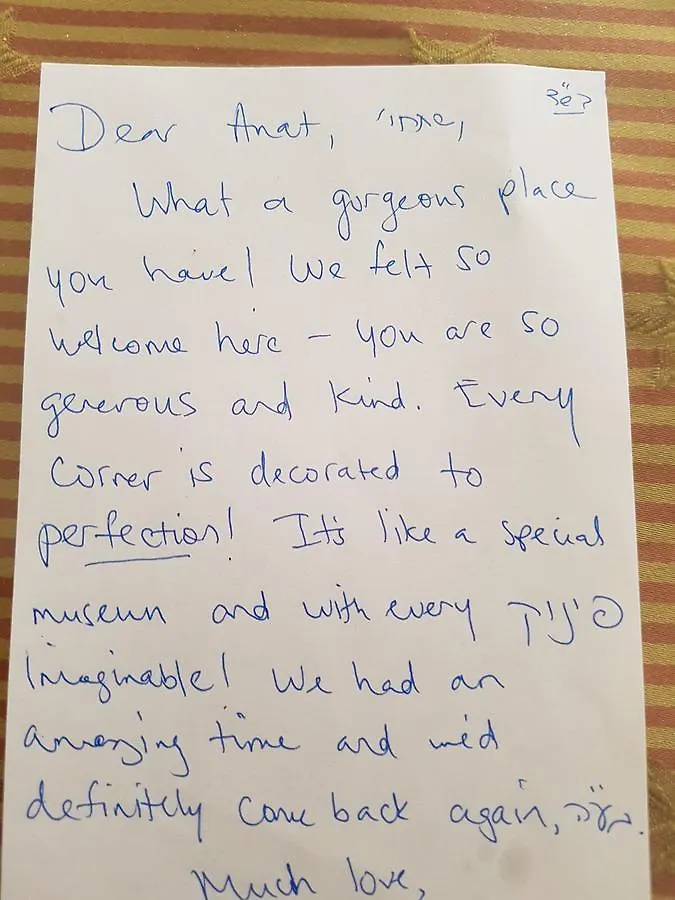 בס״ד
Dear Anat, שתחי',
What a gorgeous place
you have! We felt so
welcome here – you are so
generous and kind. Every
corner is decorated to
perfection! It's like a special
museum and with every פינוק
imaginable! We had an
amazing time and we'd
definitely come back again,
Much love,